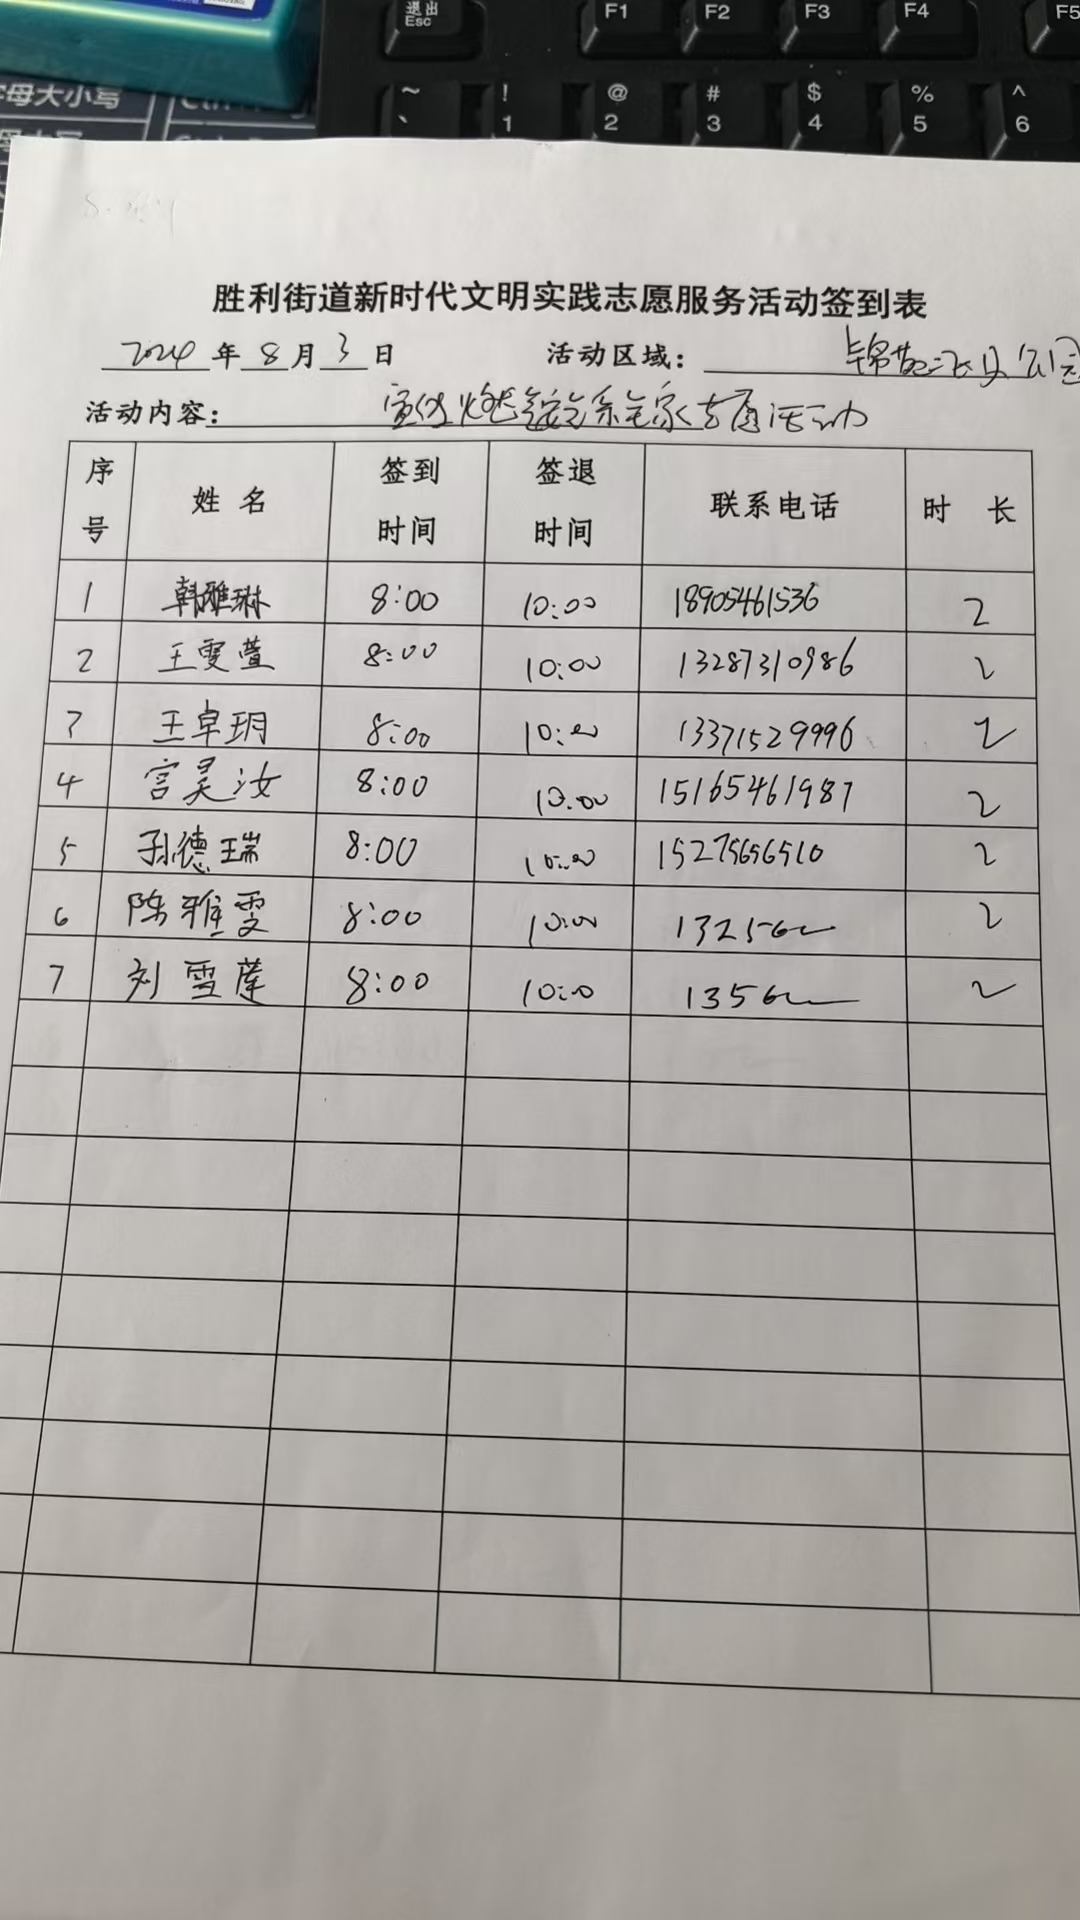 退出 F1 F2 F3 F4 F5
Esc
字母大小写
~ ! @ # $ % ^
、 1 2 3 4 5 6
胜利街道新时代文明实践志愿服务活动签到表
2024 年 8 月 3 日 活动区域： 公园
活动内容： 宣传燃气安全系全家志愿活动
序号 姓名 签到时间 签退时间 联系电话 时长
1 韩雅琳 8:00 10:00 18905461536 2
2 王雯萱 8:00 10:00 13287310986 2
3 王卓玥 8:00 10:00 13371529996 2
4 宫昊汝 8:00 10:00 15165461987 2
5 孙德瑞 8:00 10:00 15275656510 2
6 陈雅雯 8:00 10:00 13256 2
7 刘雪莲 8:00 10:00 1356 2